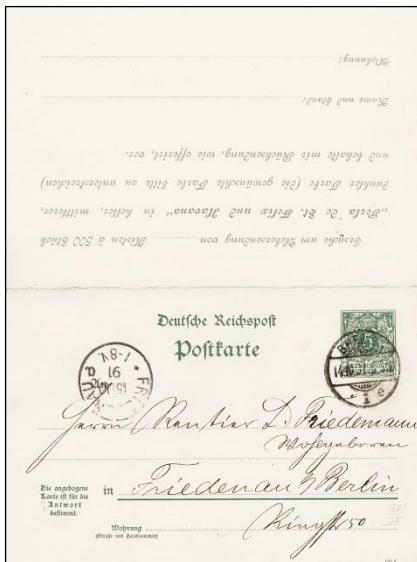 Ersuche um Uebersendung von Kisten à 500 Stück
„Perla de St. Felix und Havana“ in heller, mittlerer,
dunkler Farbe (die gewünschte Farbe bitte zu unterstreichen)
und behalte mir Rücksendung, wie offerirt, vor.
Name und Stand:
Wohnung:
Deutsche Reichspost
Postkarte
5
91
1-8V.
An
Herrn Rentier L. Friedemann
Wohlgeboren
Die angebogene
Karte ist für die
Antwort
bestimmt.
in Friedenau b/Berlin
Wohnung Ringstr 50
(Straße und Hausnummer)